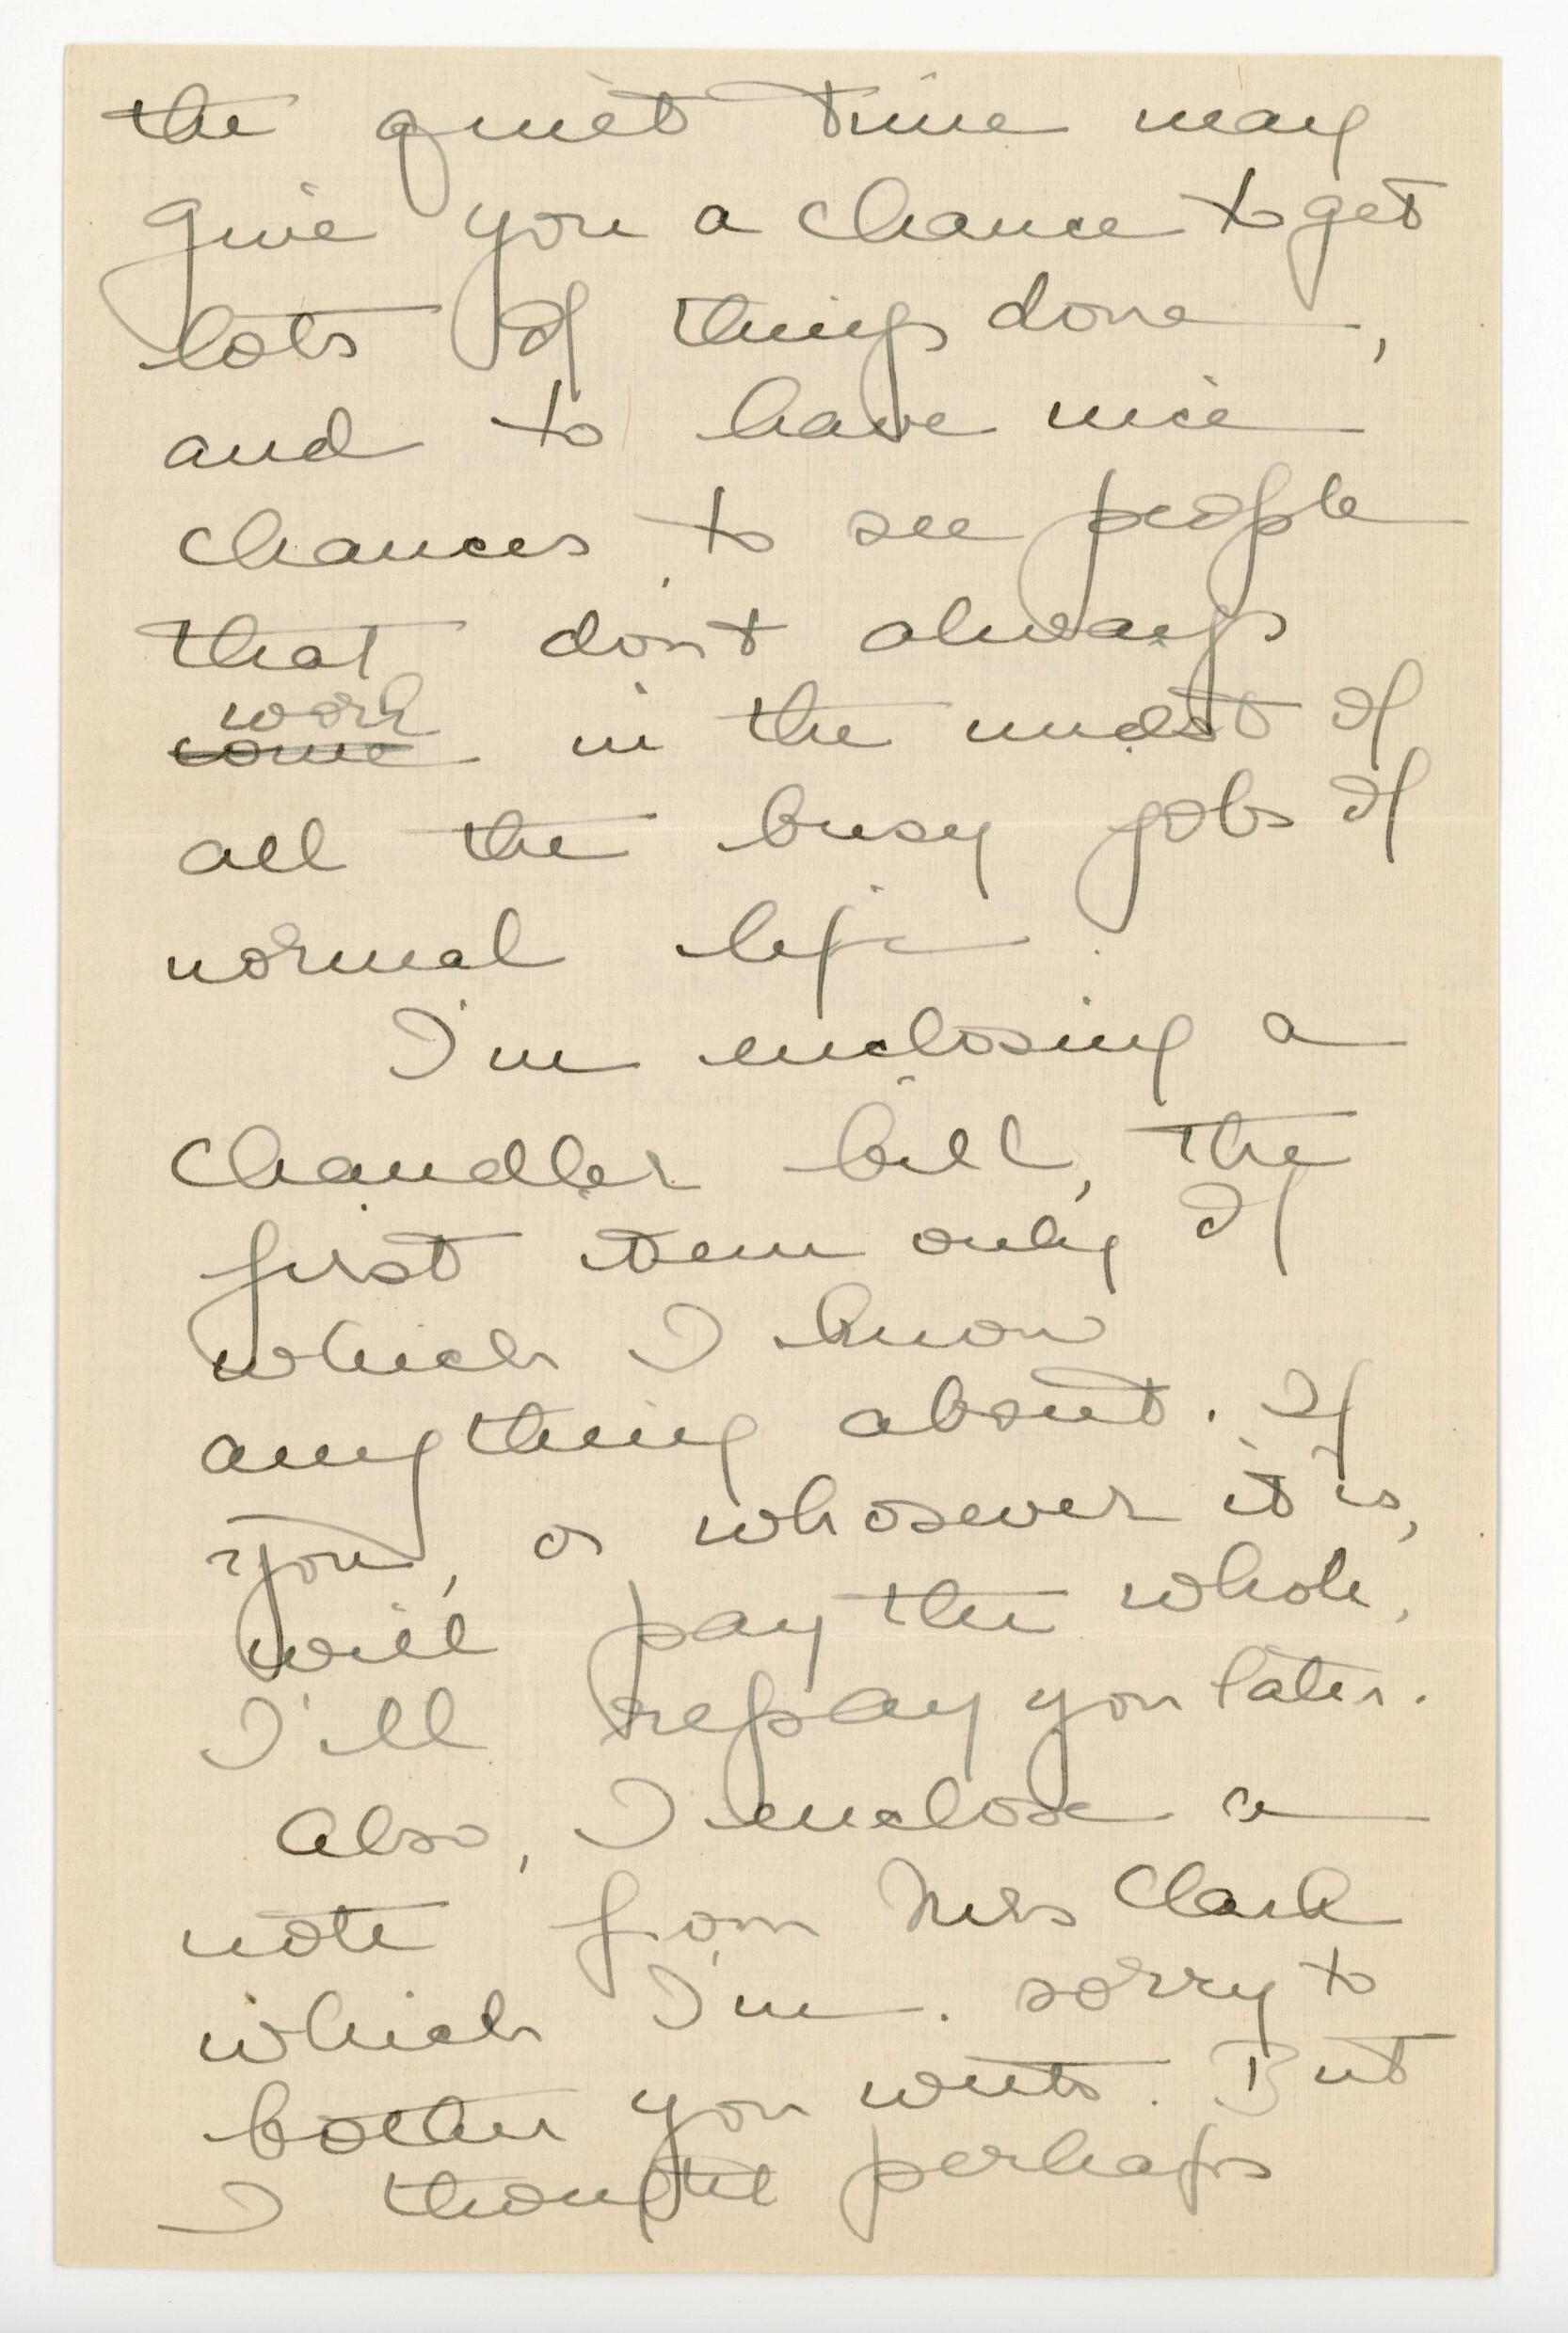 the quiet time may
give you a chance to get
lots of things done,
and to have nice
chances to see people
that don't always
work
come in the midst of
all the busy jobs of
normal life.
I'm enclosing a
Chandler bill, the
first item only of
which I know
anything about. If
you, or whosever it is,
will pay the whole,
I'll repay you later.
Also, I enclose a
note from Mrs Clark
which I'm sorry to
bother you with. But
I thought perhaps